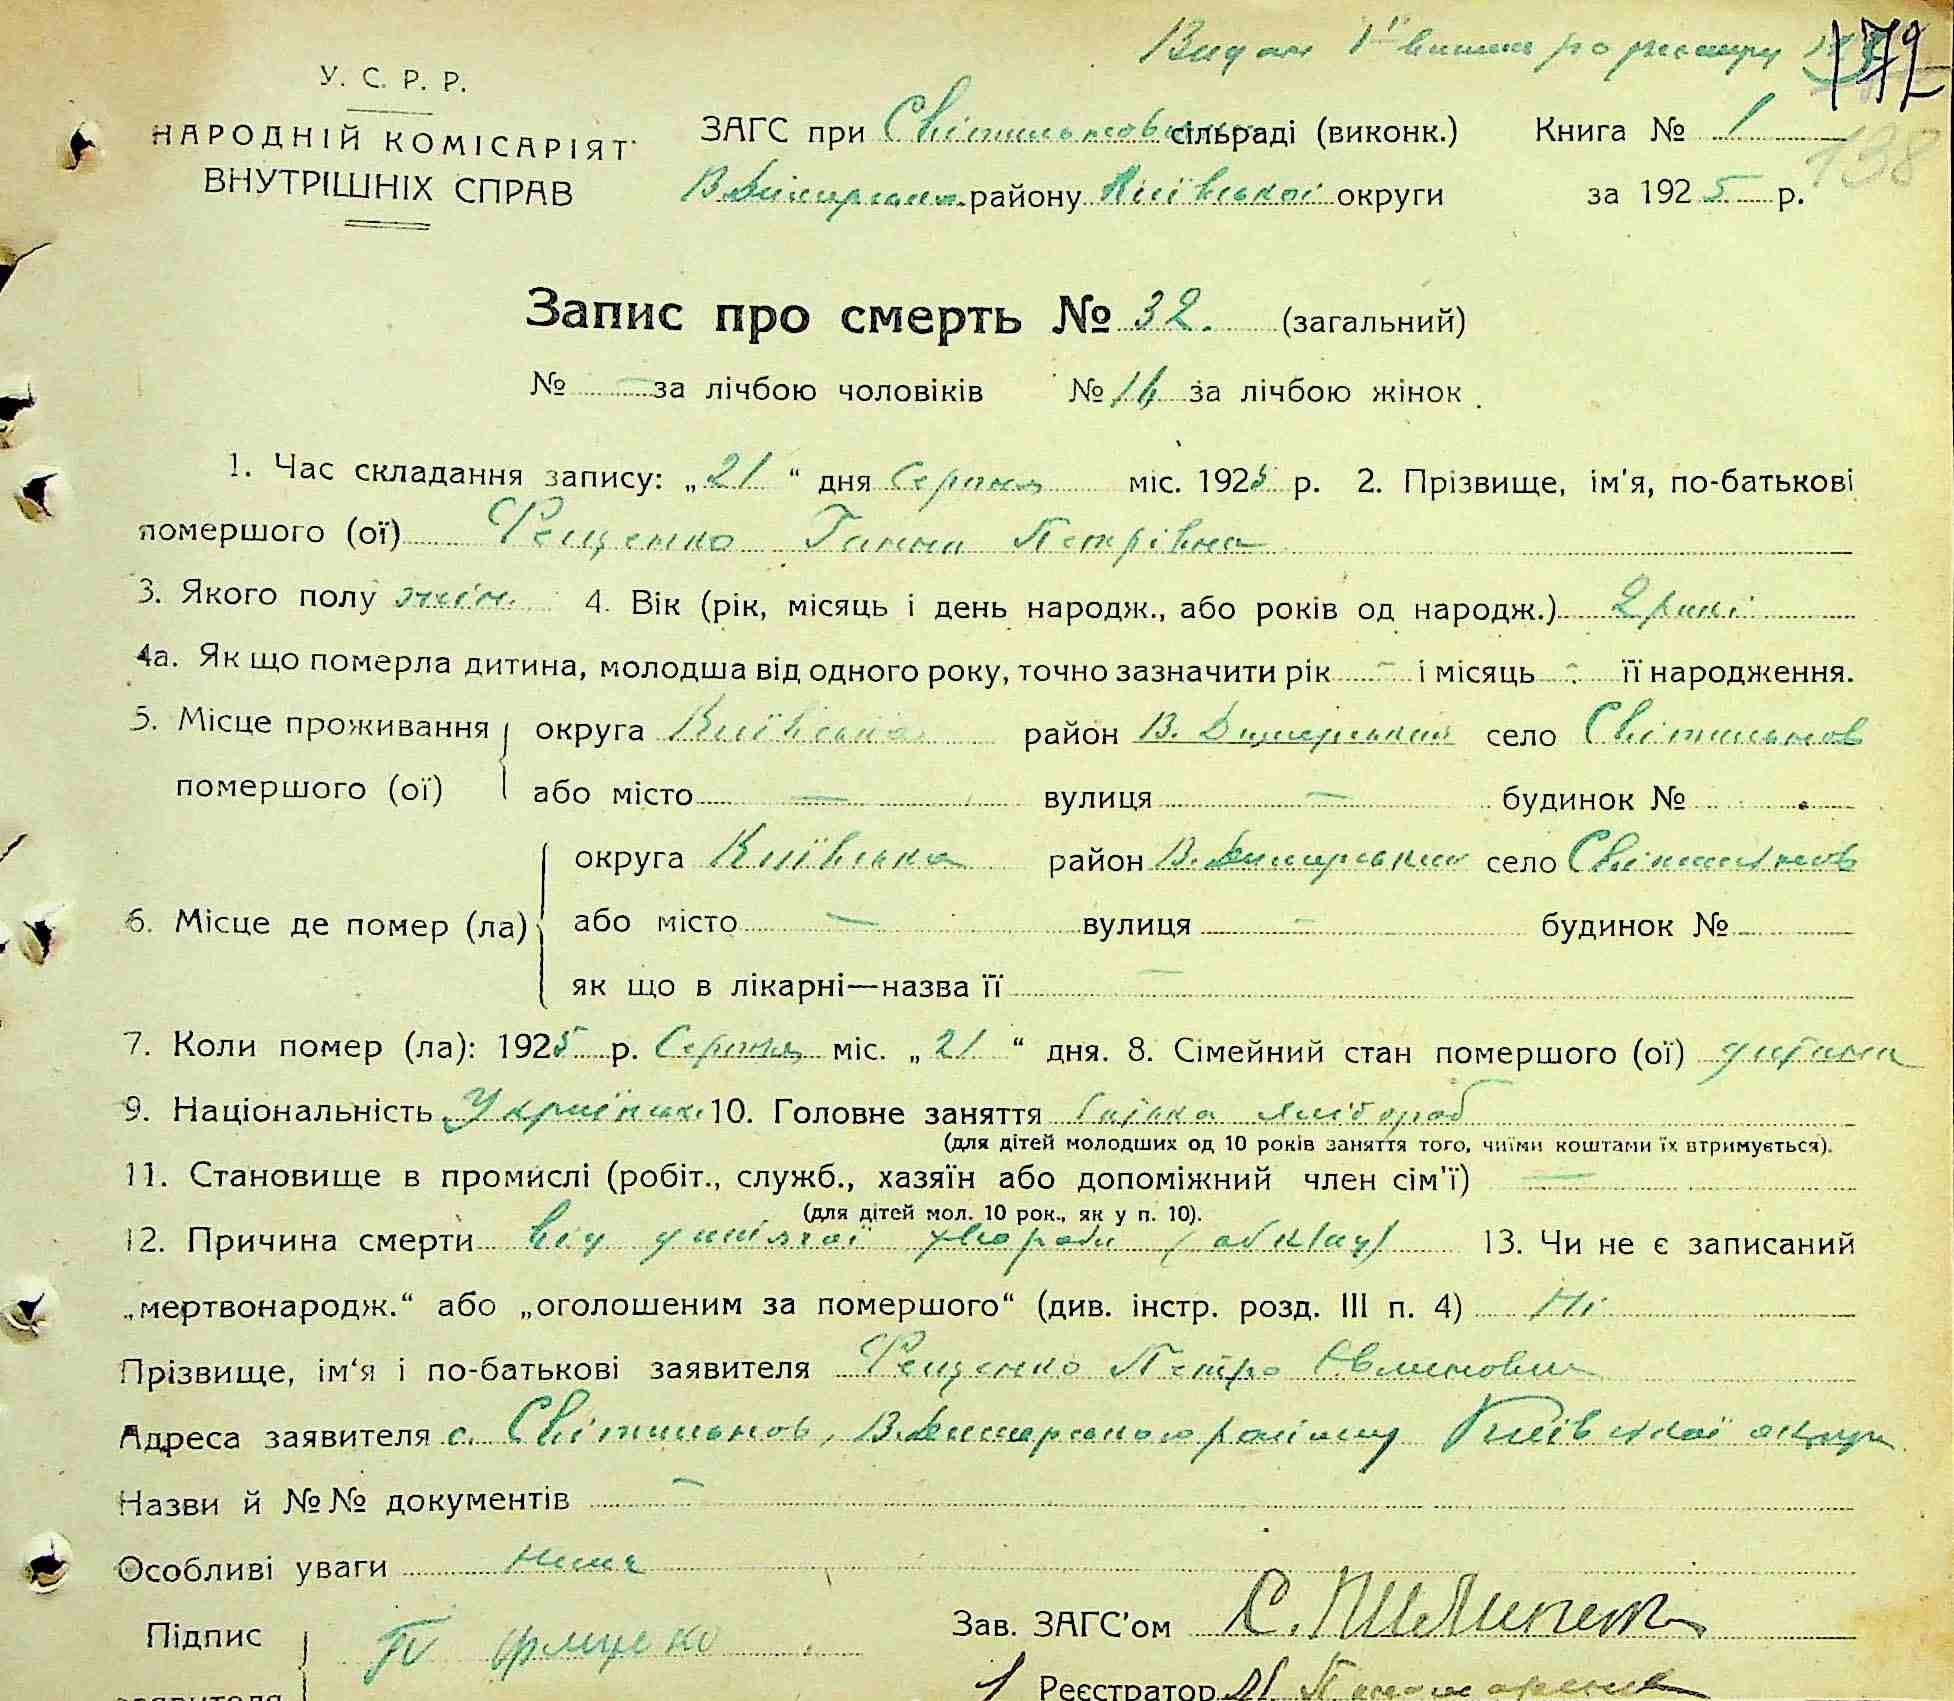 Видан 1й по реєстру 172
138
У. С. Р. Р.
НАРОДНІЙ КОМІСАРІЯТ
ВНУТРІШНІХ СПРАВ
ЗАГС при Світильновській сільраді (виконк.) Книга № 1
В. Димерськ. району Київської округи за 1925 р.
Запис про смерть № 32. (загальний)
№ — за лічбою чоловіків № 16 за лічбою жінок.
1. Час складання запису: „21“ дня Серпня міс. 1925 р. 2. Прізвище, ім'я, по-батькові
помершого (ої) Фещенко Ганна Петрівна
3. Якого полу жін. 4. Вік (рік, місяць і день народж., або років од народж.) 2 роки
4а. Як що померла дитина, молодша від одного року, точно зазначити рік — і місяць - її народження.
5. Місце проживання округа Київська район В. Димерський село Світильнов
помершого (ої) або місто — вулиця — будинок №
округа Київська район В. Димерський село Світильнов
6. Місце де помер (ла) або місто — вулиця — будинок №
як що в лікарні—назва її —
7. Коли помер (ла): 1925 р. Серпня міс. „21“ дня. 8. Сімейний стан помершого (ої) дитина
9. Національність Українськ. 10. Головне заняття батька хлібороб
(для дітей молодших од 10 років заняття того, чиїми коштами їх втримується).
11. Становище в промислі (робіт., служб., хазяїн або допоміжний член сім'ї) —
(для дітей мол. 10 рок., як у п. 10).
12. Причина смерти від дитячої хвороби 13. Чи не є записаний
„мертвонародж.“ або „оголошеним за помершого“ (див. інстр. розд. III п. 4) Ні
Прізвище, ім'я і по-батькові заявителя Фещенко Петро
Адреса заявителя с. Світильнов, В. Димерського району Київської округи
Назви й №№ документів —
Особливі уваги нема
Підпис Фещенко Зав. ЗАГС'ом С.
заявителя Реєстратор